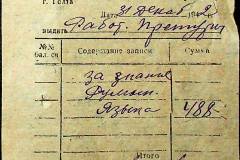 г. Голта
Дата 31 декаб 194
Выдать Работ. Претуры
№№ бал. сч Содержание записи Сумма
за знание
Румын.
языка 488-